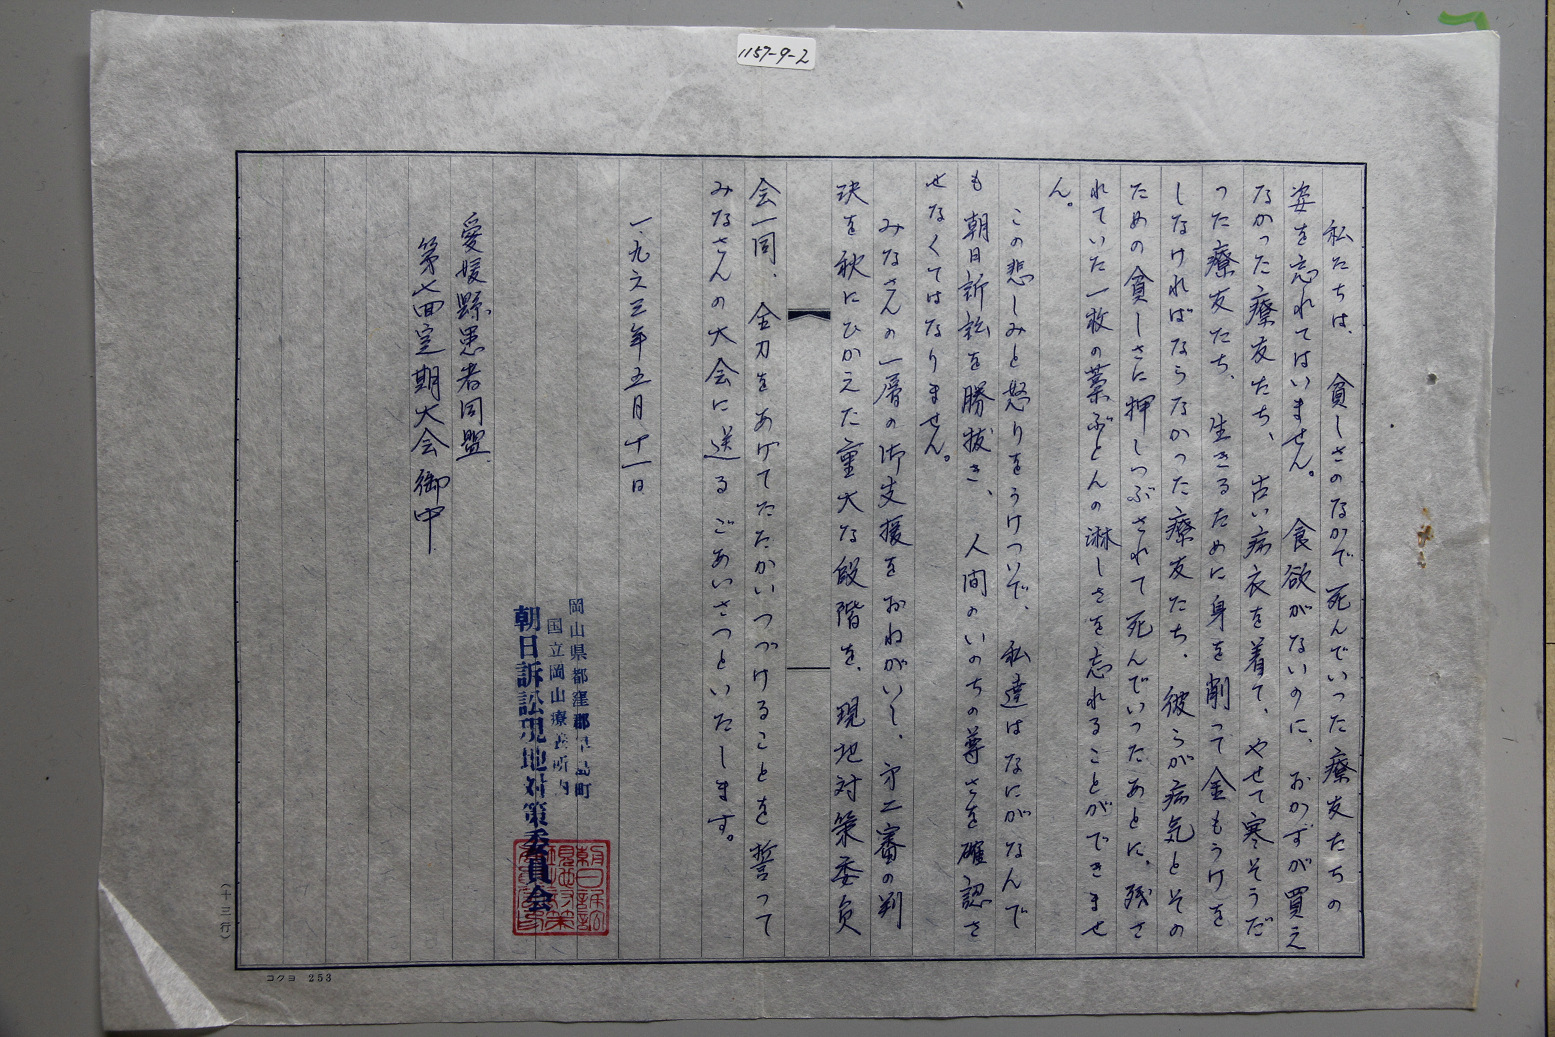 1157-9-2
私たちは、貧しさのなかで死んでいった療友たちの
姿を忘れてはいません。食欲がないのに、おかずが買え
なかった療友たち、古い病衣を着て、やせて寒そうだ
った療友たち、生きるために身を削って金もうけを
しなければならなかった療友たち、彼らが病気とその
ための貧しさに押しつぶされて死んでいったあとに、残さ
れていた一枚の藁ぶとんの淋しさを忘れることができませ
ん。
この悲しみと怒りをうけついで、私達はなにがなんで
も朝日訴訟を勝抜き、人間のいのちの尊さを確認さ
せなくてはなりません。
みなさんの一層の御支援をおねがいし、才二審の判
決を秋にひかえた重大な段階を、現地対策委員
会一同、全力をあげてたたかいつづけることを誓って
みなさんの大会に送るごあいさつといたします。
一九六三年五月十一日
岡山県都窪郡早島町
国立岡山療養所内
朝日訴訟現地対策委員会
愛媛縣患者同盟
第七回定期大会御中
(十三行)
コクヨ 253